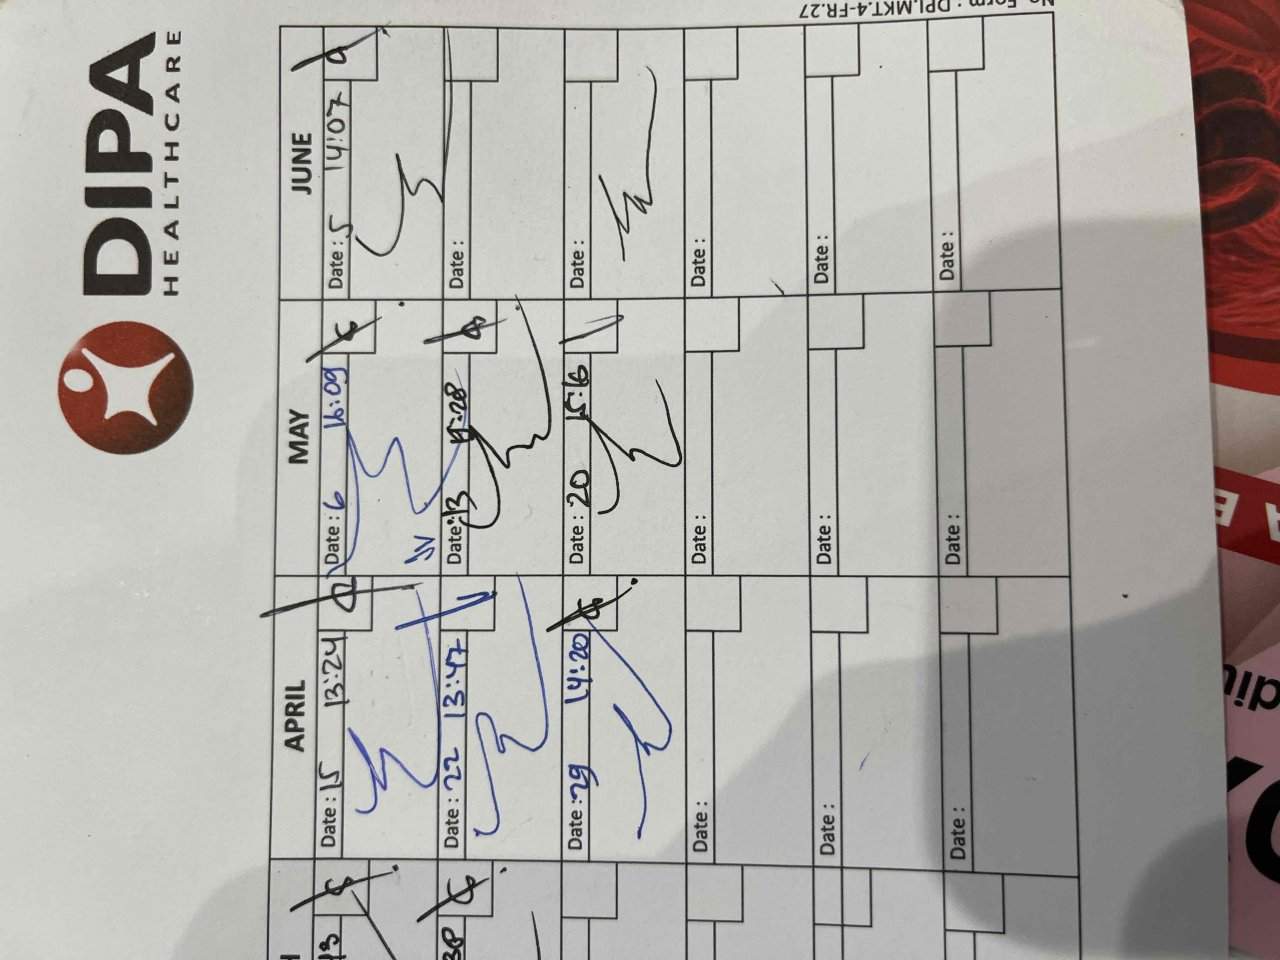 No. Form : DPI.MKT.4-FR.27
DIPA
HEALTHCARE
APRIL
MAY
JUNE
Date : 15 13:24
Date : 6 16:09
Date : 5 14:07
Date : 22 13:47
Date : 13
Date :
Date : 29 14:20
Date : 20
Date :
Date :
Date :
Date :
Date :
Date :
Date :
Date :
Date :
Date :